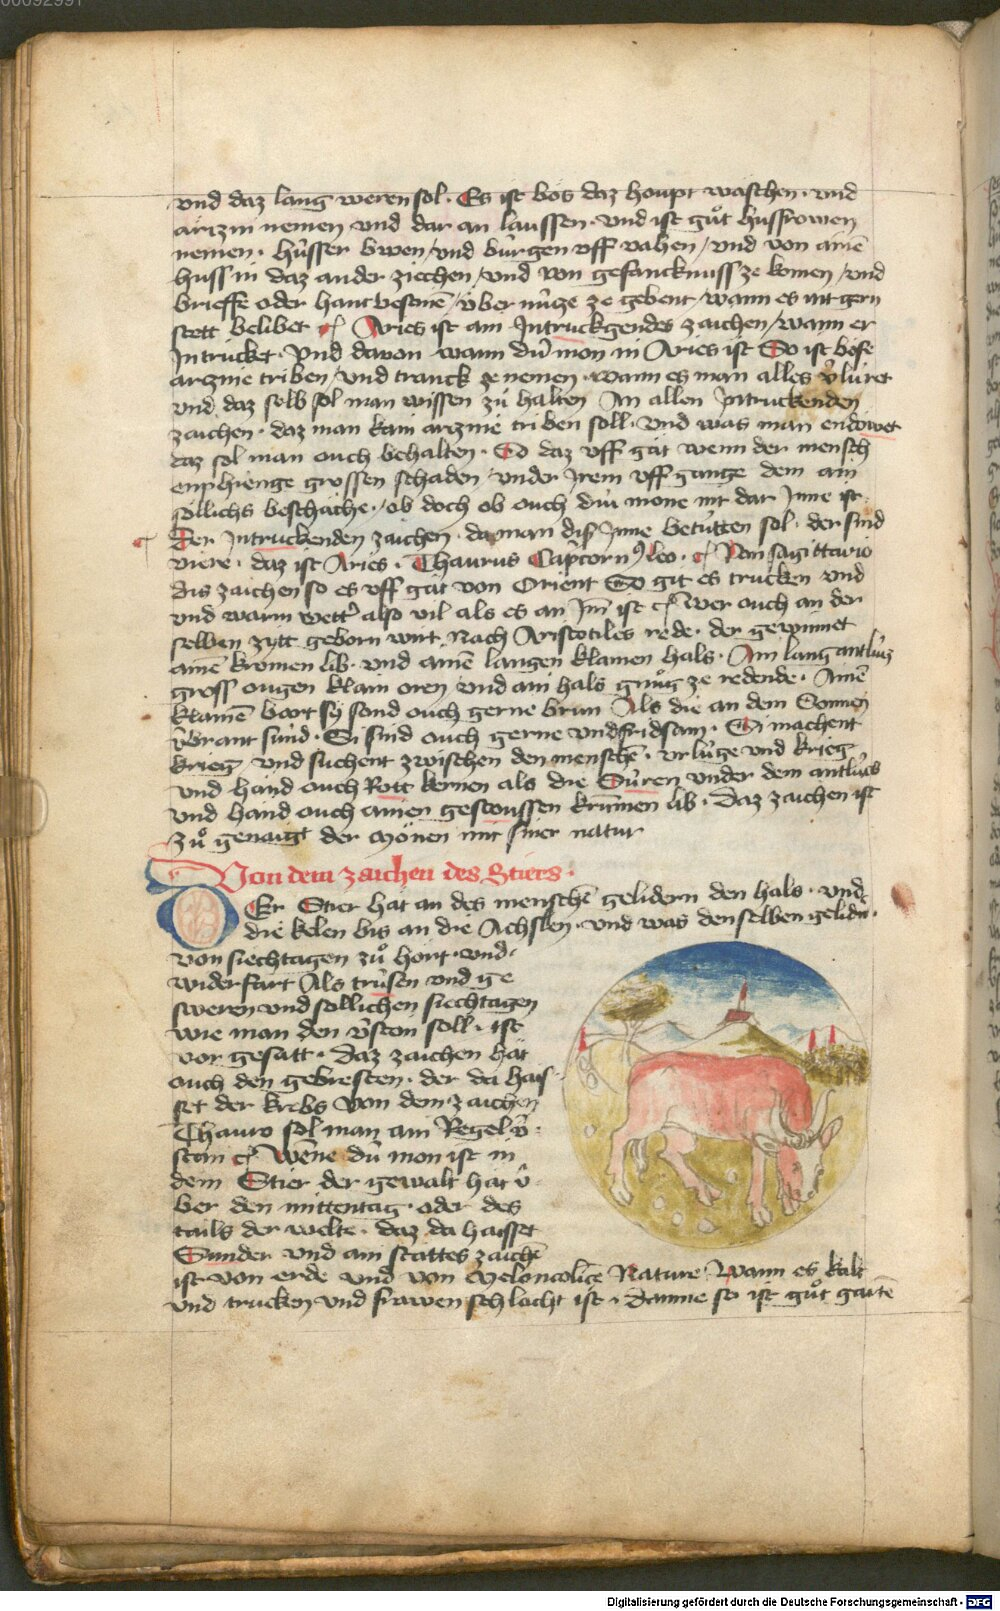 00092991
vnd daz lang weren sol · Es ist bös daz houpt wäschen · vnd
artzin nemen vnd dar an laussen · vnd ist gůt husfrowen
nemen · hüsser bwen / vnd bürgen vff vahen / vnd von ainē
huss in daz ander ziechen / vnd von gefancknuss ze komen / vnd
brieffe oder hantvestinē / über nütze ze gebent / wann es nit gern
stett belibet ¶ Aries ist ain Intruckgendes zaichen / wann er
Intrücket · Vnd davon wann dü mon in Aries ist So ist böse
artznie triben / vnd tranck ze nemen · wann es man alles v̄lüret
vnd daz selb sol man wissen zů halten In allen Intruckenden
zaichen · daz man kain artznie triben soll · vnd was man endöwet
daz sol man ouch behalten · So daz vff gät wenn der mensch
enphienge grossen schaden / vnder Irem vff gange dem ain
söllichs beschäche / ob doch ob ouch dü mone nit dar Inne ist
¶ Der Intruckenden zaichen · da man dis Inne betütten sol · der sind
viere · daz ist Aries · Thaurus Capcornꝰ leo · ¶ Von sagittario
dis zaichen so es vff gät von Orient So git es trucken vnd
vnd warm wettʼ also vil als es an Im ist ¶ wer ouch an der
selben zytt geborn wirt Nach Aristotiles rede · der gewinnet
ainē kromen lib · vnd ainē langen klainen hals · Ain lang antlütz
gross ougen klain oren vnd ain hals gnůg ze redende · Ainē
klainē bart sy sond ouch gerne brun Als die an dem Sonnen
v̄brant sind · Si sind ouch gerne vndfridsam · Si machent
krieg vnd suchent zwischen den menschē · vrlüge vnd krieg
vnd hand ouch Rott kernen als die Süren vnder dem antlücs
vnd hand ouch ainen gestoussen krūmen lib · Daz zaichen ist
zů genaigt der Mönen mit siner natur
Von dem zaichen des Stiers ·
DEr Stier hat an des menschē gelidern den hals · vnd
die kelen bis an die Achslen · vnd was den selben gelidn̄ ·
von siechtagen zů hört · vnd ·
widerfart Als trüsen vnd ge
sweren vnd sollichen siechtagen
wie man den v̄ston soll · ist
vor gesatt · Daz zaichen hät
ouch den gebresten · der da hais-
set der krebs Von dem zaichen
Thauro sol man ain Regel v̄-
stän ¶ Wēne dü mon ist in
dem Stier der gewalt hät ü-
ber den mittentag · oder des
tails der welte · daz da haisset
Sunder vnd ain stättes zaichē
ist von erde vnd von Meloncolice Nature Wann es kalt
vnd trucken vnd frawen schlacht ist · Danne so ist gůt gartē
Digitalisierung gefördert durch die Deutsche Forschungsgemeinschaft - DFG